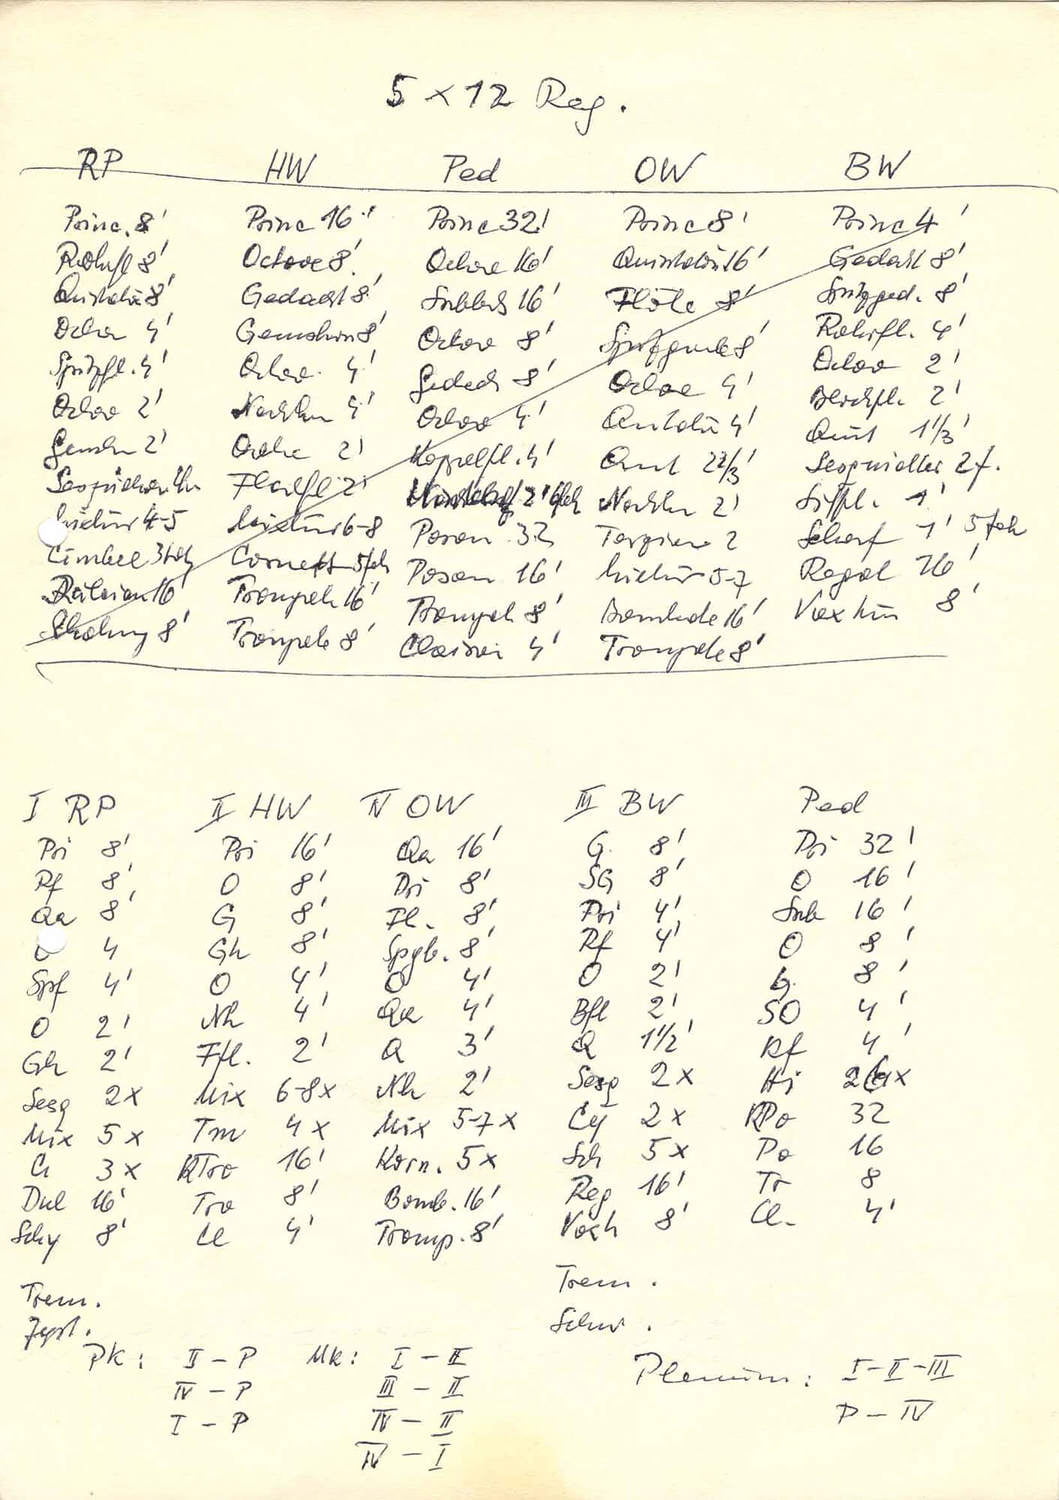 5 × 12 Reg.
RP HW Ped OW BW
Princ. 8' Princ 16' Princ 32' Princ 8' Princ 4'
Rohrfl 8' Octave 8' Octave 16' Quintatön 16' Gedackt 8'
Quintatön 8' Gedackt 8' Subbass 16' Flöte 8' Spitzged. 8'
Octav 4' Gemshorn 8' Octav 8' 8' Rohrfl. 4'
Spitzfl. 4' Octav 4' Gedack 8' Octave 4' Octav 2'
Octav 2' Nachthn 4' Octav 4' Quintatön 4' Blockfl. 2'
Gemshn 2' Octave 2' Koppelfl. 4' Quint 2 2/3' Quint 1 1/3'
Flachfl 2' Nachthn 2' Sesquialter 2 f.
Mixtur 4-5 Mixtur 6-8 Posaun 32 Terzian 2 Siffl. 1'
Cimbel 3fch Cornett 5fch Posaun 16' Mixtur 5-7 Scharf 1' 5fch
16' Trompete 16' Trompete 8' Bombarde 16' Regal 16'
8' Trompete 8' Clairon 4' Trompete 8' Vox hum 8'
I RP II HW IV OW III BW Ped
Pri 8' Pri 16' Qa 16' G. 8' Pri 32'
Rf 8' O 8' Pri 8' SG 8' O 16'
Qa 8' G 8' Fl. 8' Pri 4' Sub 16'
4 Gh 8' Spgb. 8' Rf 4' O 8'
Spf 4' O 4' O 4' O 2' G. 8'
O 2' Nh 4' Qa 4' Bfl 2' SO 4'
Gh 2' Ffl. 2' Q 3' Q 1 1/2' Rf 4'
Sesq 2x Mix 6-8x Nh 2' Sesq 2x Hi
Mix 5x Tm 4x Mix 5-7x Cy 2x Po 32
Ci 3x Tro 16' Korn. 5x Sch 5x Po 16
Dul 16' Tro 8' Bomb. 16' Reg 16' Tr 8
Schy 8' Cl 4' Tromp. 8' Voxh 8' Cl. 4'
Trem. Trem.
Zyst. Schw.
PK: II - P MK: I - II Plenum: I-II-III
IV - P III - II P - IV
I - P IV - II
IV - I